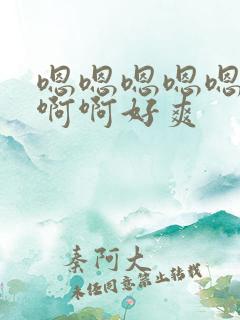 嗯嗯嗯嗯嗯
啊啊好爽
秦阿大
未经同意禁止转载